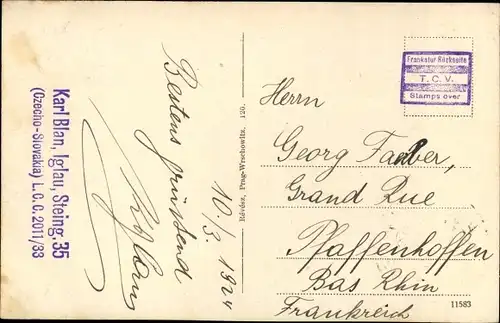 Karl Blan, Iglau, Steing. 35
(Czecho-Slovakia) L.C.C. 2011/33
Bestens grüssend
10/3. 1924
Révész, Prag-Wrschowitz. 120.
Frankatur Rückseite
T. C. V.
Stamps over
Herrn
Georg Faber,
Grand Rue
Pfaffenhoffen
Bas Rhin
Frankreich
11583